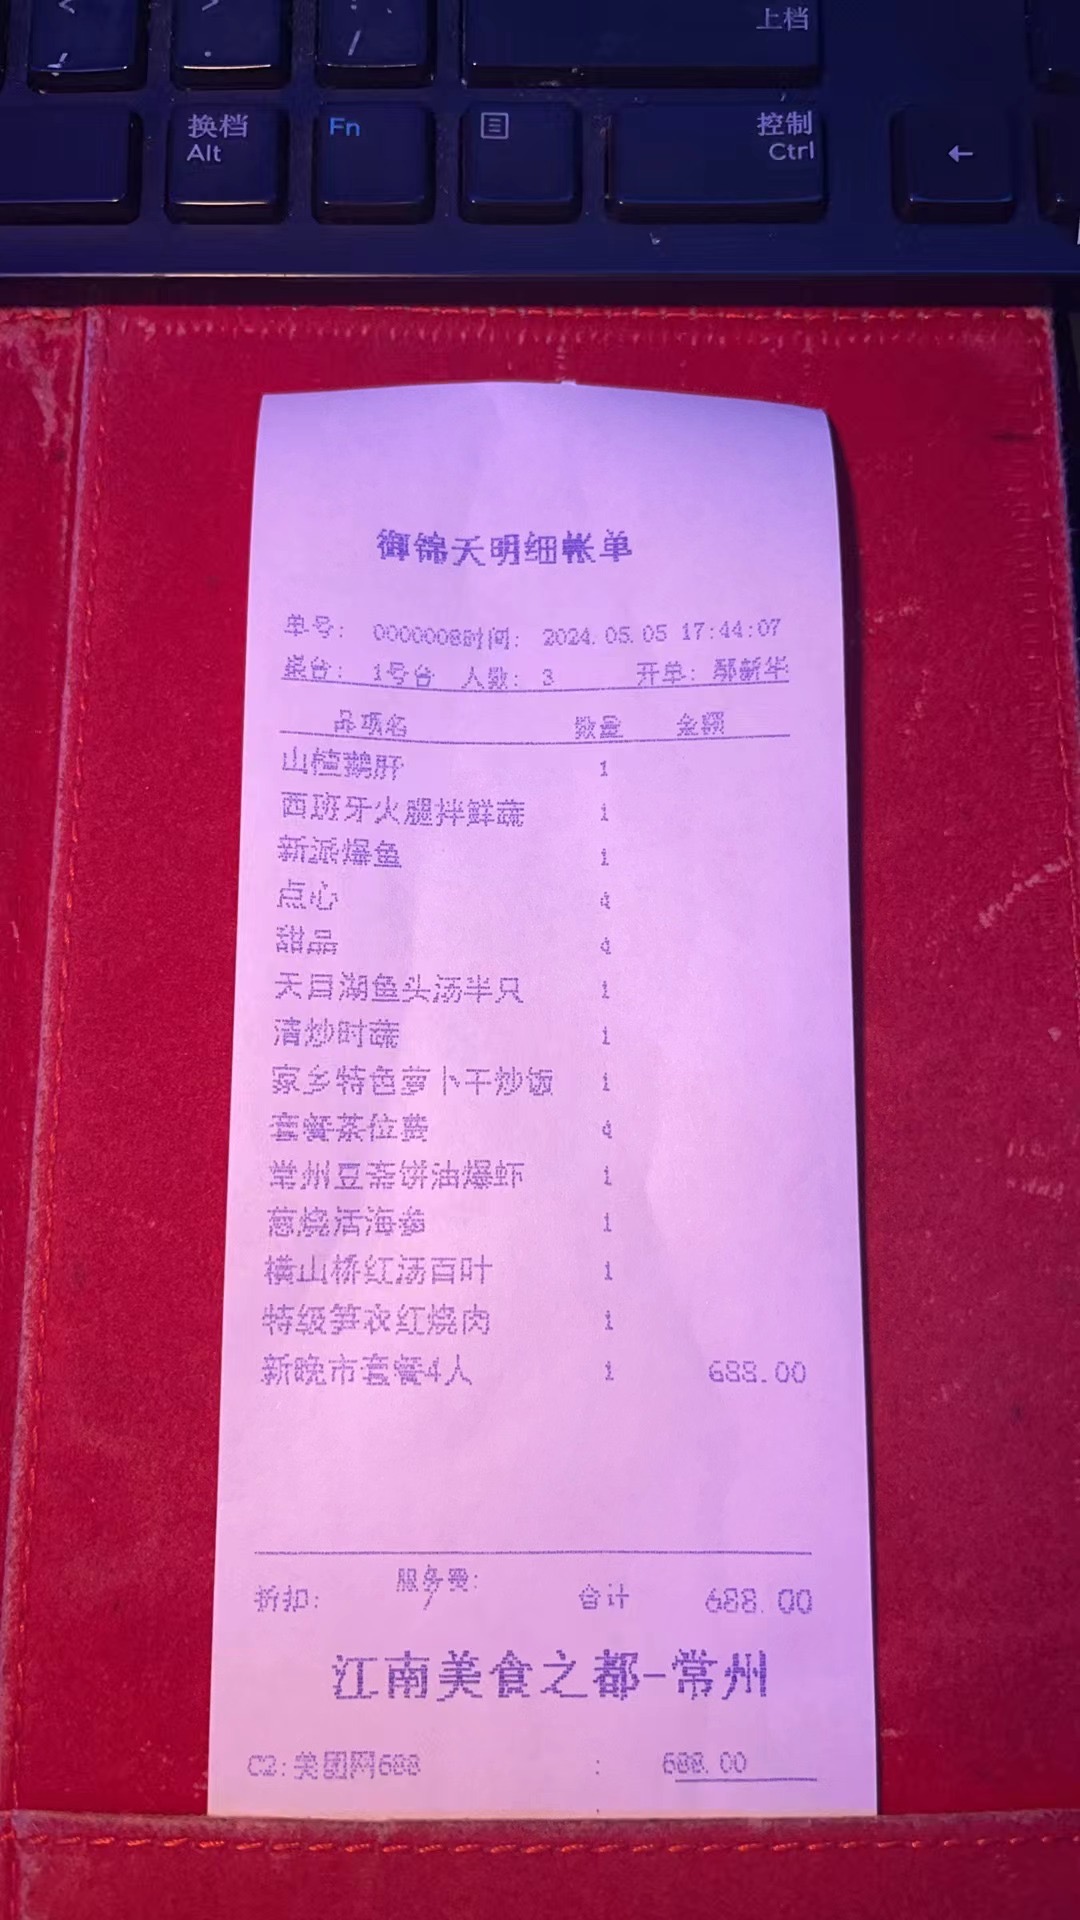 < > :
, . / 上档
换档 Fn 控制
Alt Ctrl ←
御锦天明细帐单
单号: 0000008时间: 2024.05.05 17:44:07
桌台: 1号台 人数: 3 开单: 邹新华
品项名 数量 金额
山楂鹅肝 1
西班牙火腿拌鲜蔬 1
新派爆鱼 1
点心 4
甜品 4
天目湖鱼头汤半只 1
清炒时蔬 1
家乡特色萝卜干炒饭 1
套餐茶位费 4
常州豆斋饼油爆虾 1
葱烧活海参 1
横山桥红汤百叶 1
特级笋衣红烧肉 1
新晚市套餐4人 1 688.00
服务费:
折扣: / 合计 688.00
江南美食之都-常州
C2:美团网688 : 688.00